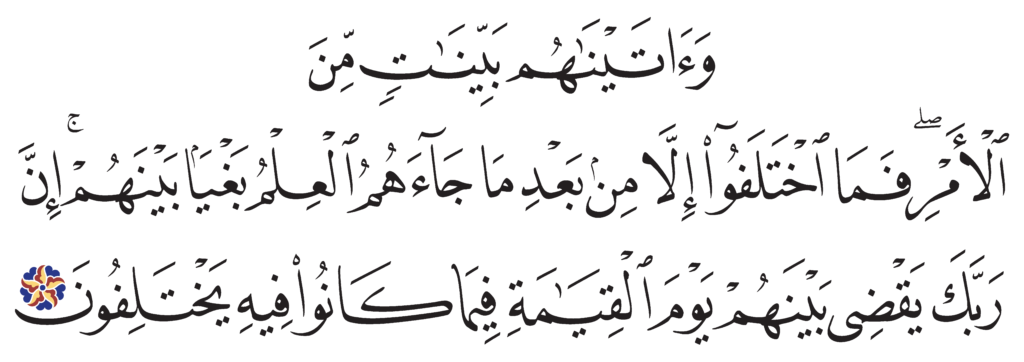 وَءَاتَيْنَٰهُم بَيِّنَٰتٍ مِّنَ
ٱلْأَمْرِ ۖ فَمَا ٱخْتَلَفُوٓا۟ إِلَّا مِنۢ بَعْدِ مَا جَآءَهُمُ ٱلْعِلْمُ بَغْيًۢا بَيْنَهُمْ ۚ إِنَّ
رَبَّكَ يَقْضِى بَيْنَهُمْ يَوْمَ ٱلْقِيَٰمَةِ فِيمَا كَانُوا۟ فِيهِ يَخْتَلِفُونَ